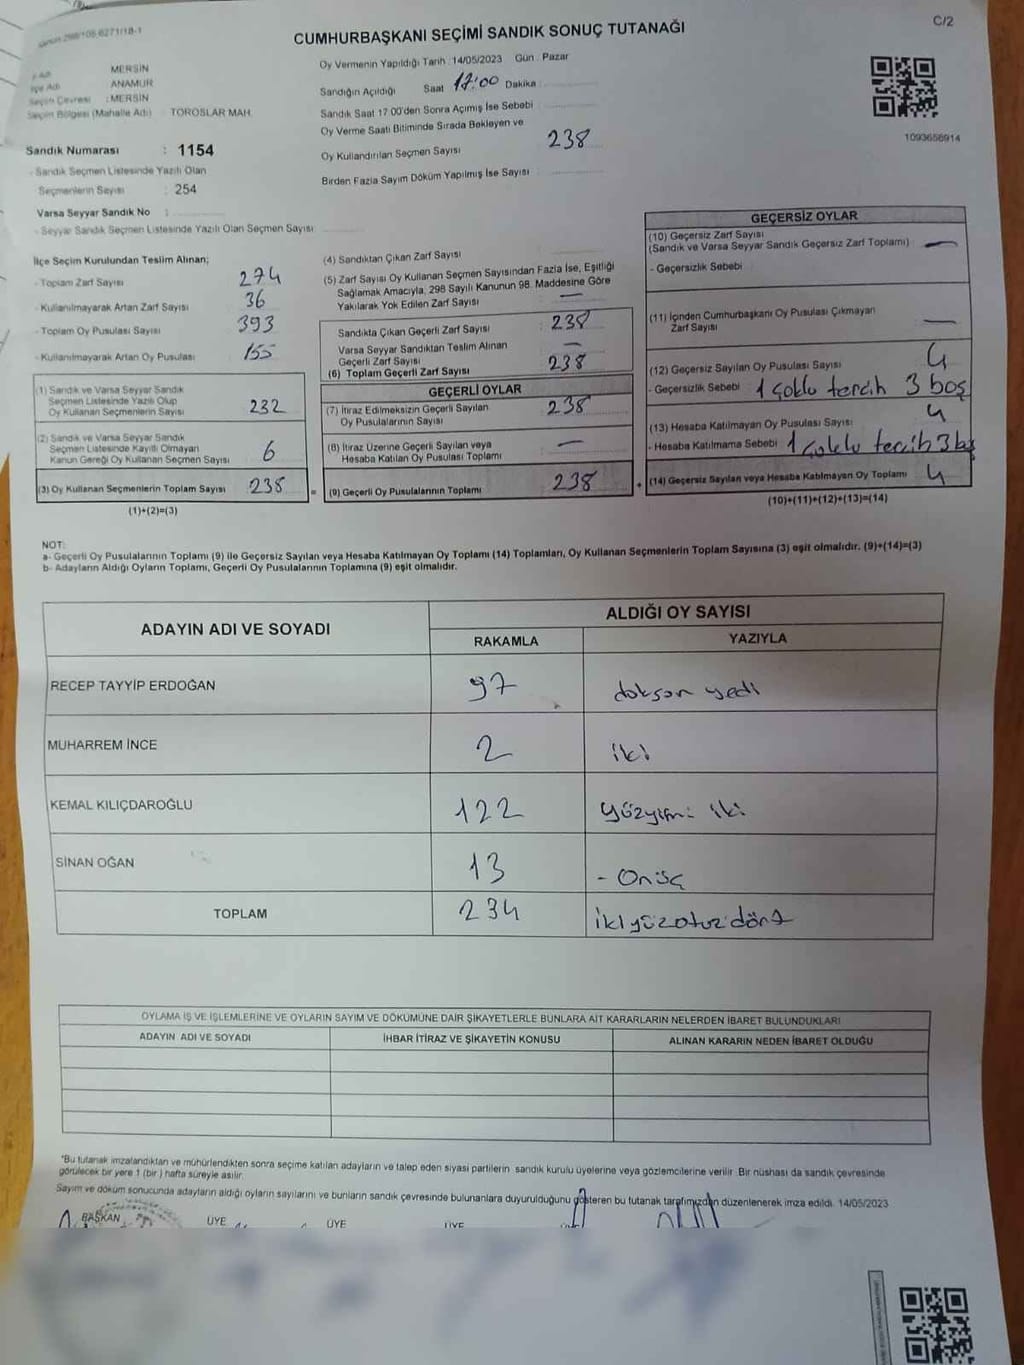 CUMHURBAŞKANI SEÇİMİ SANDIK SONUÇ TUTANAĞI
C/2
İlçe Adı
MERSİN
ANAMUR
Seçim Çevresi : MERSİN
Seçim Bölgesi (Mahalle Adı) : TOROSLAR MAH.
Sandık Numarası : 1154
- Sandık Seçmen Listesinde Yazılı Olan
Seçmenlerin Sayısı : 254
Varsa Seyyar Sandık No :
- Seyyar Sandık Seçmen Listesinde Yazılı Olan Seçmen Sayısı :
Oy Vermenin Yapıldığı Tarih : 14/05/2023 Gün : Pazar
Sandığın Açıldığı Saat 17:00 Dakika :
Sandık Saat 17.00'den Sonra Açımış İse Sebebi :
Oy Verme Saati Bitiminde Sırada Bekleyen ve
Oy Kullandırılan Seçmen Sayısı : 238
Birden Fazla Sayım Döküm Yapılmış İse Sayısı :
1093658914
İlçe Seçim Kurulundan Teslim Alınan;
- Toplam Zarf Sayısı : 274
- Kullanılmayarak Artan Zarf Sayısı : 36
- Toplam Oy Pusulası Sayısı : 393
- Kullanılmayarak Artan Oy Pusulası : 155
(1) Sandık ve Varsa Seyyar Sandık
Seçmen Listesinde Yazılı Olup
Oy Kullanan Seçmenlerin Sayısı : 232
(2) Sandık ve Varsa Seyyar Sandık
Seçmen Listesinde Kayıtlı Olmayan
Kanun Gereği Oy Kullanan Seçmen Sayısı : 6
(3) Oy Kullanan Seçmenlerin Toplam Sayısı : 238
(1)+(2)=(3)
(4) Sandıktan Çıkan Zarf Sayısı :
(5) Zarf Sayısı Oy Kullanan Seçmen Sayısından Fazla İse, Eşitliği
Sağlamak Amacıyla, 298 Sayılı Kanunun 98. Maddesine Göre
Yakılarak Yok Edilen Zarf Sayısı : —
Sandıkta Çıkan Geçerli Zarf Sayısı : 238
Varsa Seyyar Sandıktan Teslim Alınan
Geçerli Zarf Sayısı : —
(6) Toplam Geçerli Zarf Sayısı : 238
GEÇERLİ OYLAR
(7) İtiraz Edilmeksizin Geçerli Sayılan
Oy Pusulalarının Sayısı : 238
(8) İtiraz Üzerine Geçerli Sayılan veya
Hesaba Katılan Oy Pusulası Toplamı : —
= (9) Geçerli Oy Pusulalarının Toplamı : 238
GEÇERSİZ OYLAR
(10) Geçersiz Zarf Sayısı
(Sandık ve Varsa Seyyar Sandık Geçersiz Zarf Toplamı) : —
- Geçersizlik Sebebi :
(11) İçinden Cumhurbaşkanı Oy Pusulası Çıkmayan
Zarf Sayısı : —
(12) Geçersiz Sayılan Oy Pusulası Sayısı : 4
- Geçersizlik Sebebi : 1 çoklu tercih 3 boş
(13) Hesaba Katılmayan Oy Pusulası Sayısı : 4
- Hesaba Katılmama Sebebi : 1 çoklu tercih 3 boş
+ (14) Geçersiz Sayılan veya Hesaba Katılmayan Oy Toplamı : 4
(10)+(11)+(12)+(13)=(14)
NOT:
a- Geçerli Oy Pusulalarının Toplamı (9) ile Geçersiz Sayılan veya Hesaba Katılmayan Oy Toplamı (14) Toplamları, Oy Kullanan Seçmenlerin Toplam Sayısına (3) eşit olmalıdır. (9)+(14)=(3)
b- Adayların Aldığı Oyların Toplamı, Geçerli Oy Pusulalarının Toplamına (9) eşit olmalıdır.
ADAYIN ADI VE SOYADI
ALDIĞI OY SAYISI
RAKAMLA YAZIYLA
RECEP TAYYİP ERDOĞAN 97 doksan yedi
MUHARREM İNCE 2 iki
KEMAL KILIÇDAROĞLU 122 yüzyirmi iki
SİNAN OĞAN 13 - Onüç
TOPLAM 234 ikiyüzotuzdört
OYLAMA İŞ VE İŞLEMLERİNE VE OYLARIN SAYIM VE DÖKÜMÜNE DAİR ŞİKAYETLERLE BUNLARA AİT KARARLARIN NELERDEN İBARET BULUNDUKLARI
ADAYIN ADI VE SOYADI İHBAR İTİRAZ VE ŞİKAYETİN KONUSU ALINAN KARARIN NEDEN İBARET OLDUĞU
*Bu tutanak imzalandıktan ve mühürlendikten sonra seçime katılan adayların ve talep eden siyasi partilerin sandık kurulu üyelerine veya gözlemcilerine verilir. Bir nüshası da sandık çevresinde
görülecek bir yere 1 (bir) hafta süreyle asılır.
Sayım ve döküm sonucunda adayların aldığı oyların sayılarını ve bunların sandık çevresinde bulunanlara duyurulduğunu gösteren bu tutanak tarafımızdan düzenlenerek imza edildi. 14/05/2023
BAŞKAN ÜYE ÜYE ÜYE